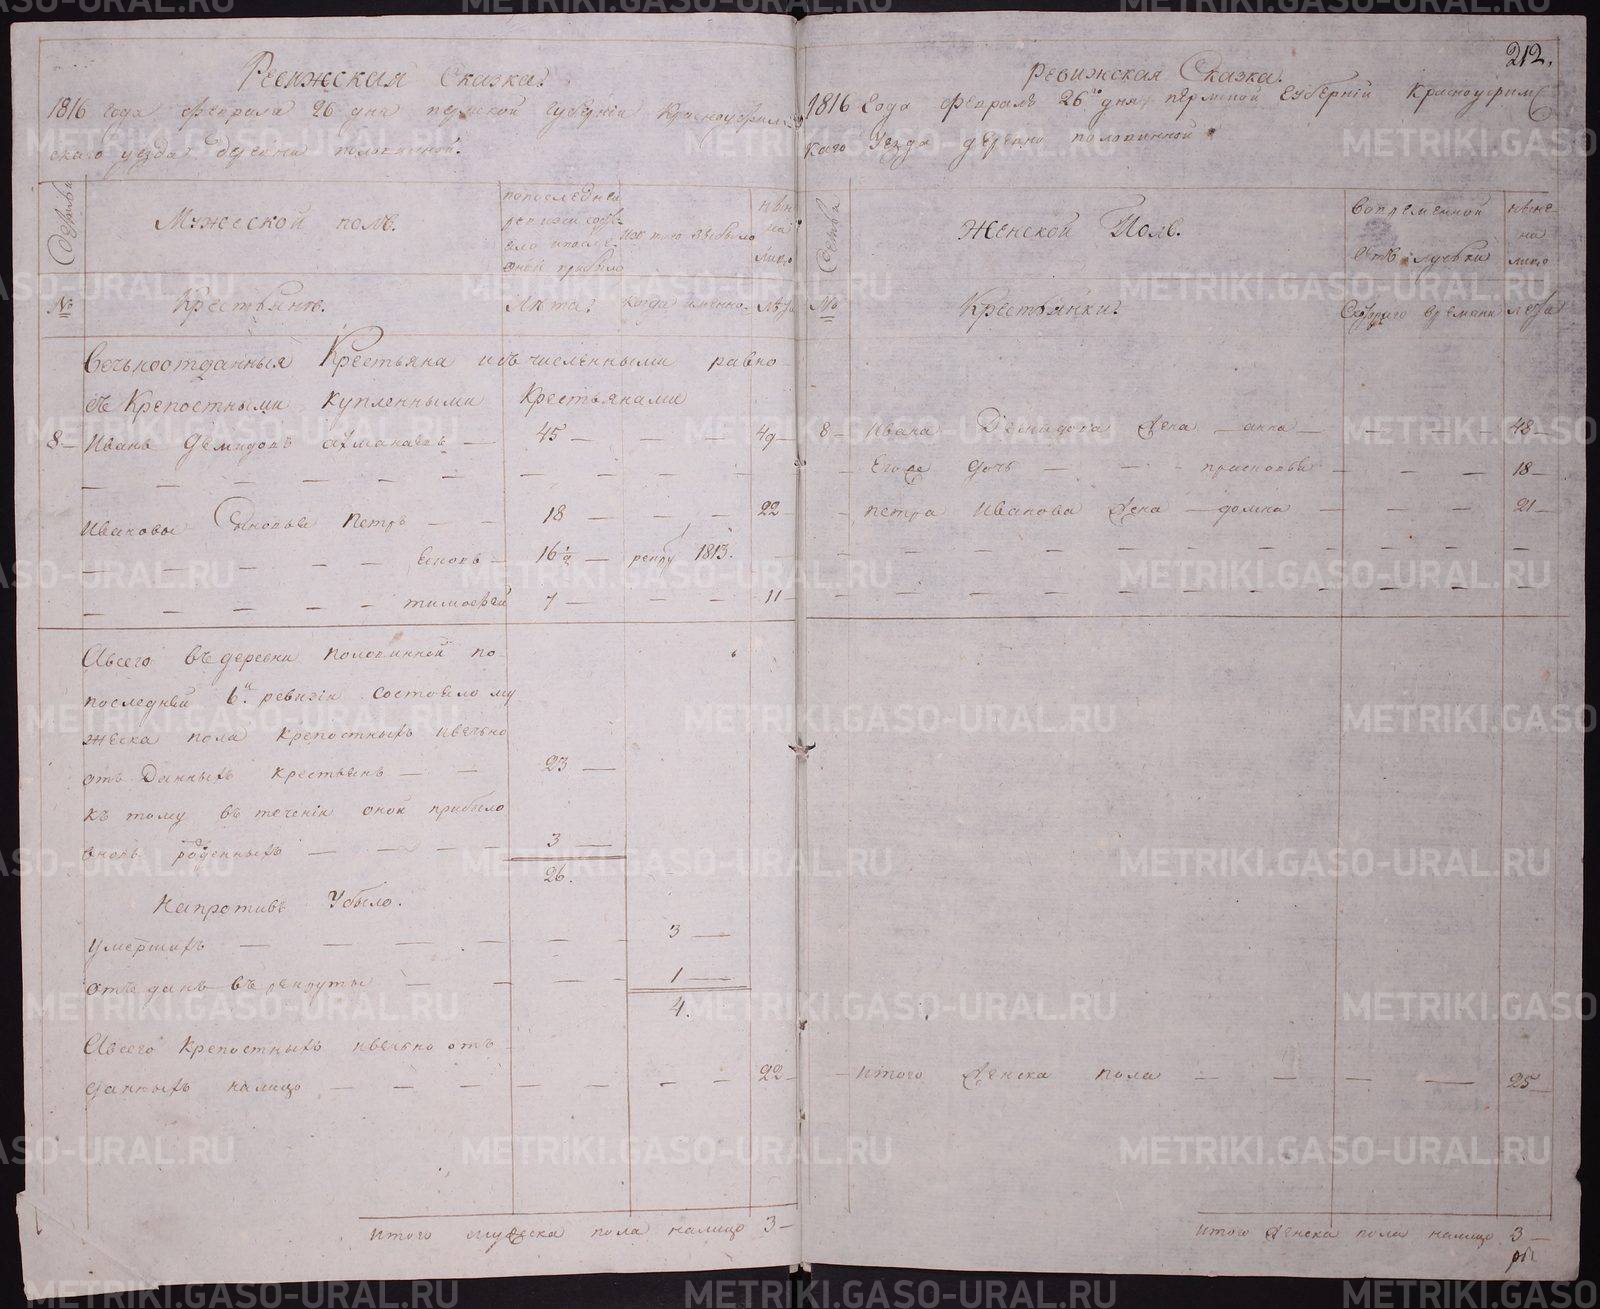 Ревижская Сказка.
1816 года февраля 26 дня пермской губернии Красноуфим
скаго уезда деревни половинной.
Мужеской полъ.
Крестьянъ.
№
лета
когда именно
лета
Вечьноотданныя Крестьяна изъчисленными равно
съ Крепостными купленными Крестьянами
8 — Иванъ Демидовъ — 45 — — — 49 —
Ивановы Сыновья Петръ — — 18 — — — 22 —
16 ½ — рекру 1813.
тимофей 7 — — — 11 —
Авсего въ деревни половинной по-
последней 6й ревизіи состояло му
жеска пола крепостныхъ ивечьно
отъ данныхъ крестьянъ — — 23 —
къ тому въ теченіи оной прибыло
вновь рожденныхъ — — — 3 —
26.
Напротивъ Убыло.
умершихъ — — — — — — 3 —
отъ данъ въ рекруты — — — — 1 —
4.
Авсего крепостныхъ ивечьно отъ
данныхъ налицо — — — — — — — 22 —
итого мужеска пола налицо 3 —
212.
Ревижская Сказка.
1816 года февраля 26го дня пермской губерніи Красноуфимс
каго уезда деревни половинной
Женской Полъ.
вовременной
отлучьки
ныне
на
лицо
№
Крестьянки
Скотораго времени
лета
8 — Ивана Демидова жена — анна — — — — 48 —
Егоже дочь — — — прасковья — — — 18 —
петра Иванова жена — домна — — — — 21 —
— итого женска пола — — — — 25 —
итого женска пола налицо 3 —
METRIKI.GASO-URAL.RU